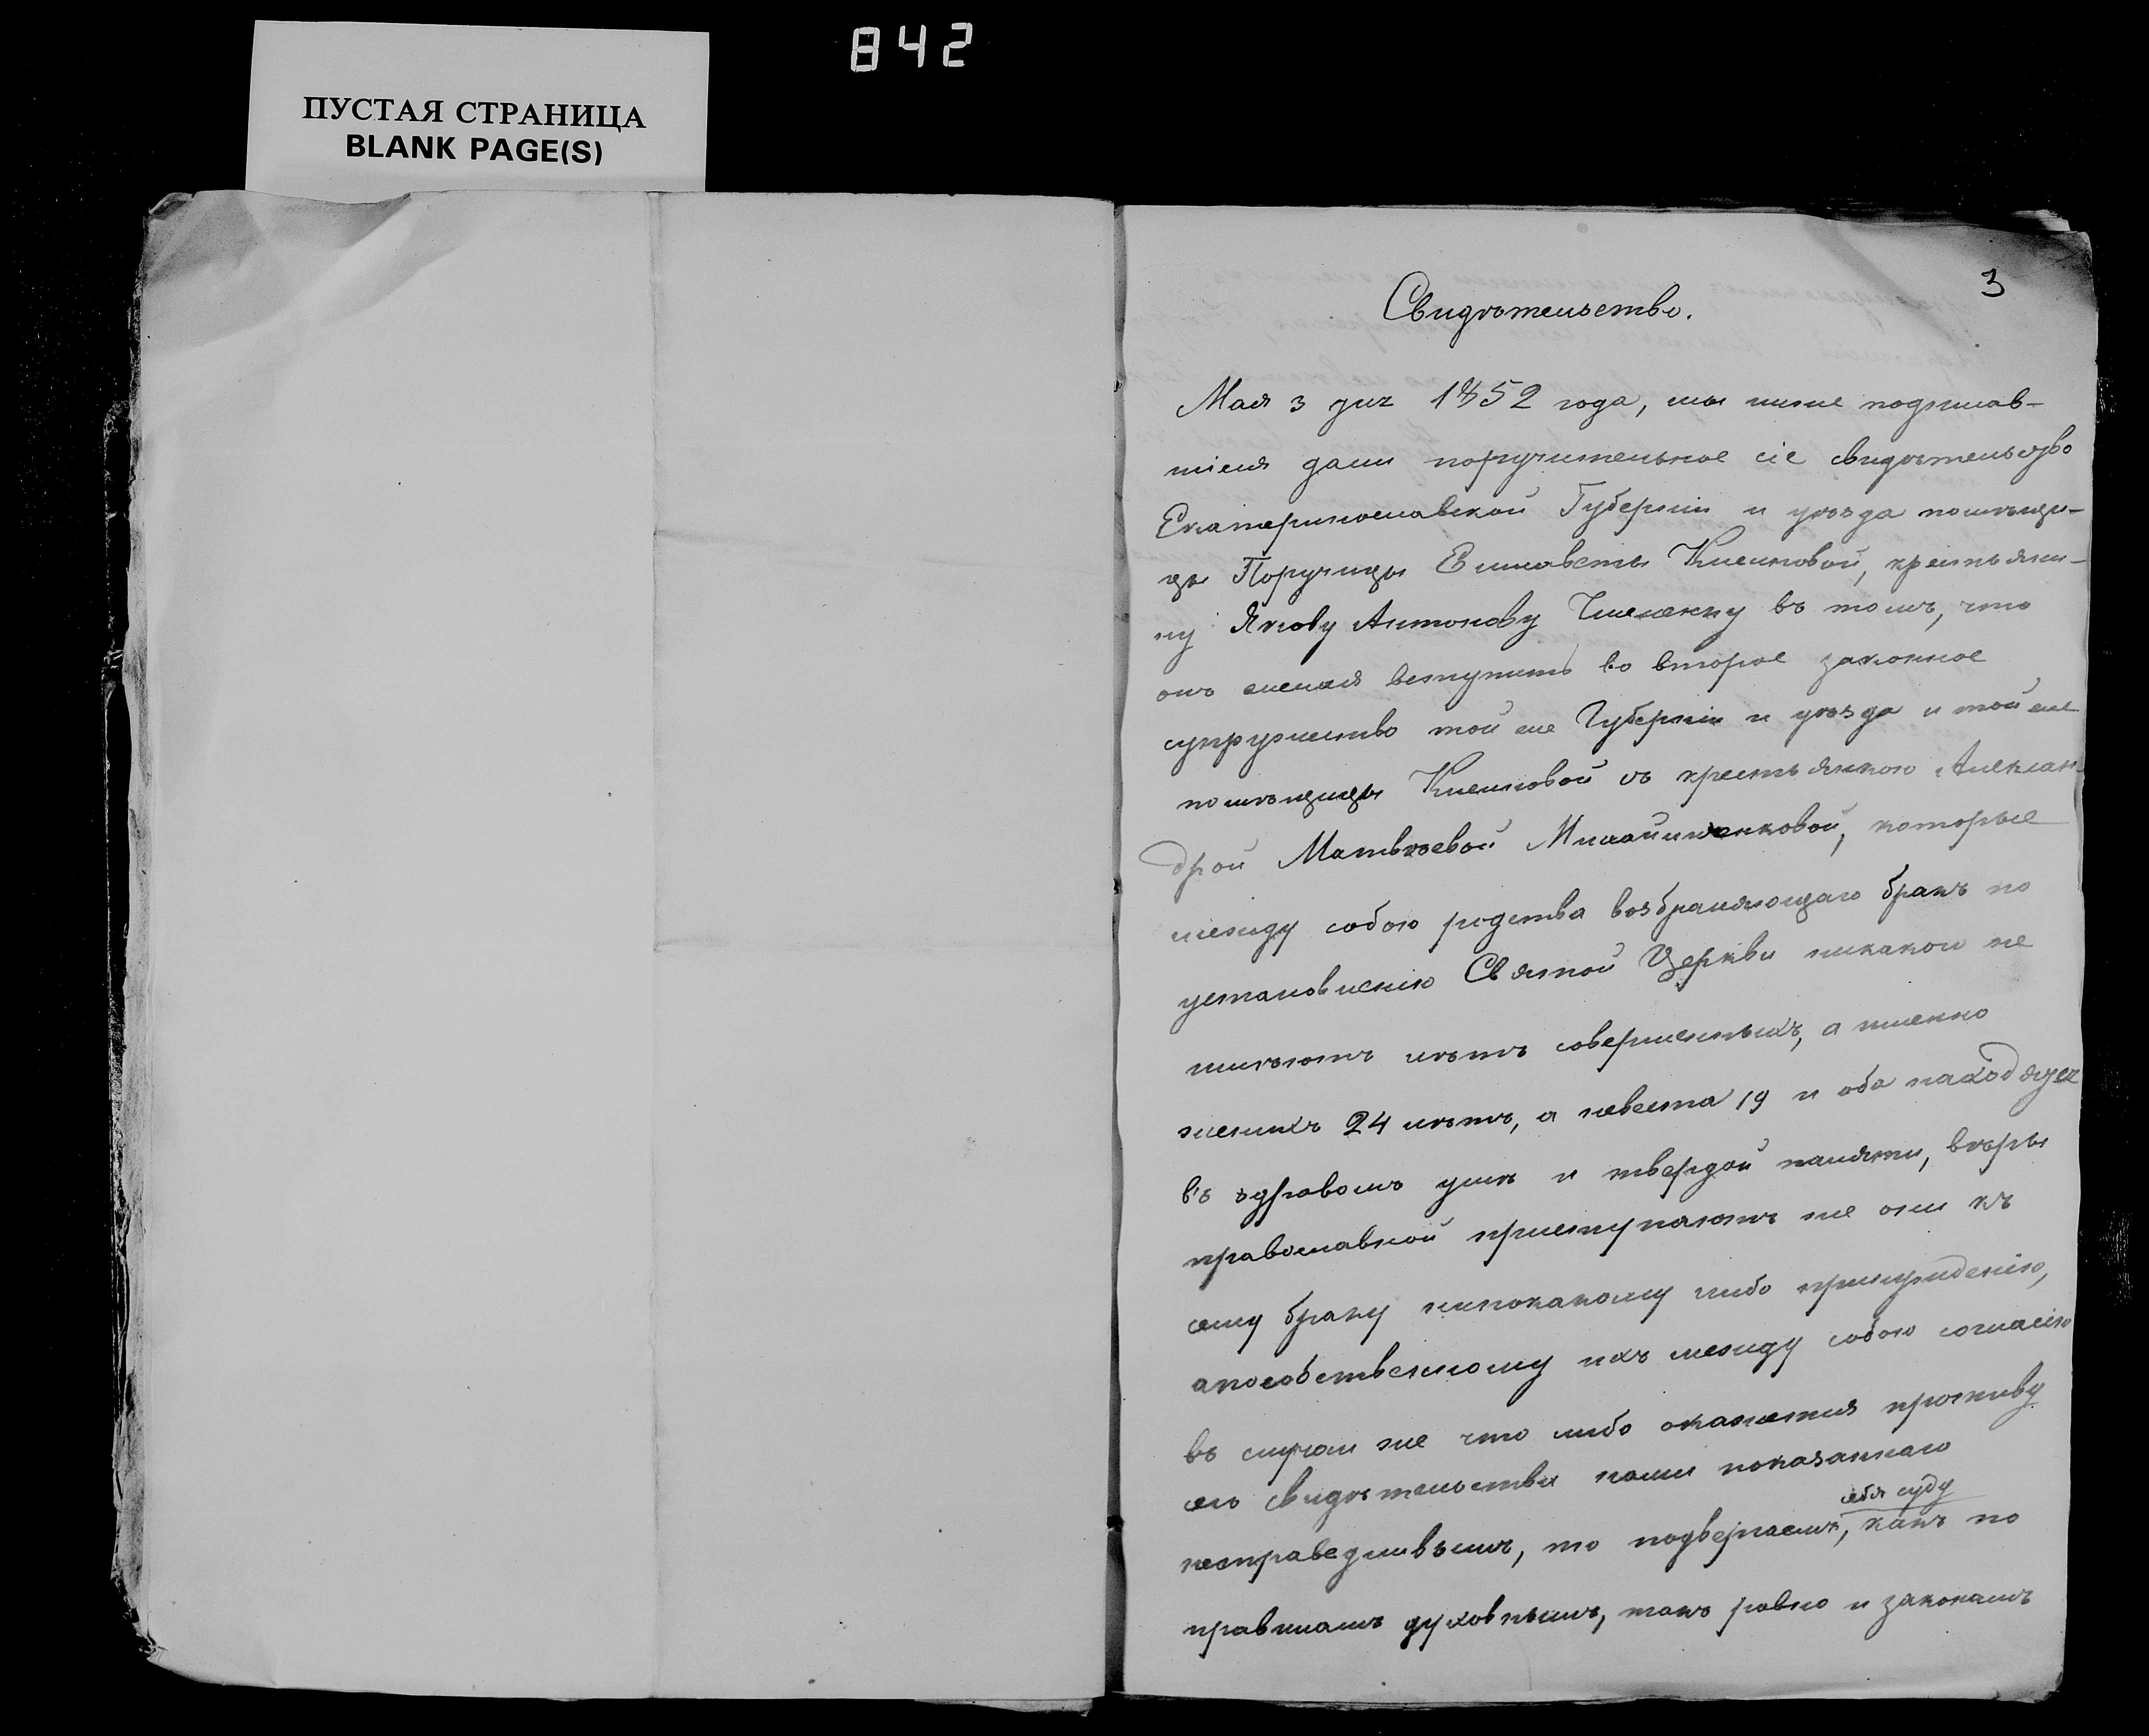 842
ПУСТАЯ СТРАНИЦА
BLANK PAGE(S)
3
Свидѣтельство.
Мая 3 дня 1852 года, мы ниже подписав-
шіеся дали поручительное сіе свидѣтельство
Екатеринославской Губерніи и уѣзда помѣщи-
цы Поручицы Елисаветы Клевцовой, крестьяни-
ну Якову Антонову въ томъ, что
онъ желая вступить во второе законное
супружество той же Губерніи и уѣзда и той же
помѣщицы съ крестьянкою Алексан-
дрой Матвѣевой которые
между собою родства возбраняющаго бракъ по
установленію Святой Церкви никакои не
имѣютъ лѣтъ совершенныхъ, а именно
женихъ 24 лѣтъ, а невеста 19 и оба находяця
въ здравомъ умѣ и твердой памяти, вѣры
православной приступаютъ же они къ
сему браку непокакому либо принужденію,
апособственному ихъ между собою согласію
въ случаи же что либо окажется противу
сего свидѣтельства нами показаннаго
себя суду
несправедливымъ, то подвергаемъ, какъ по
правиламъ духовнымъ, такъ равно и законамъ